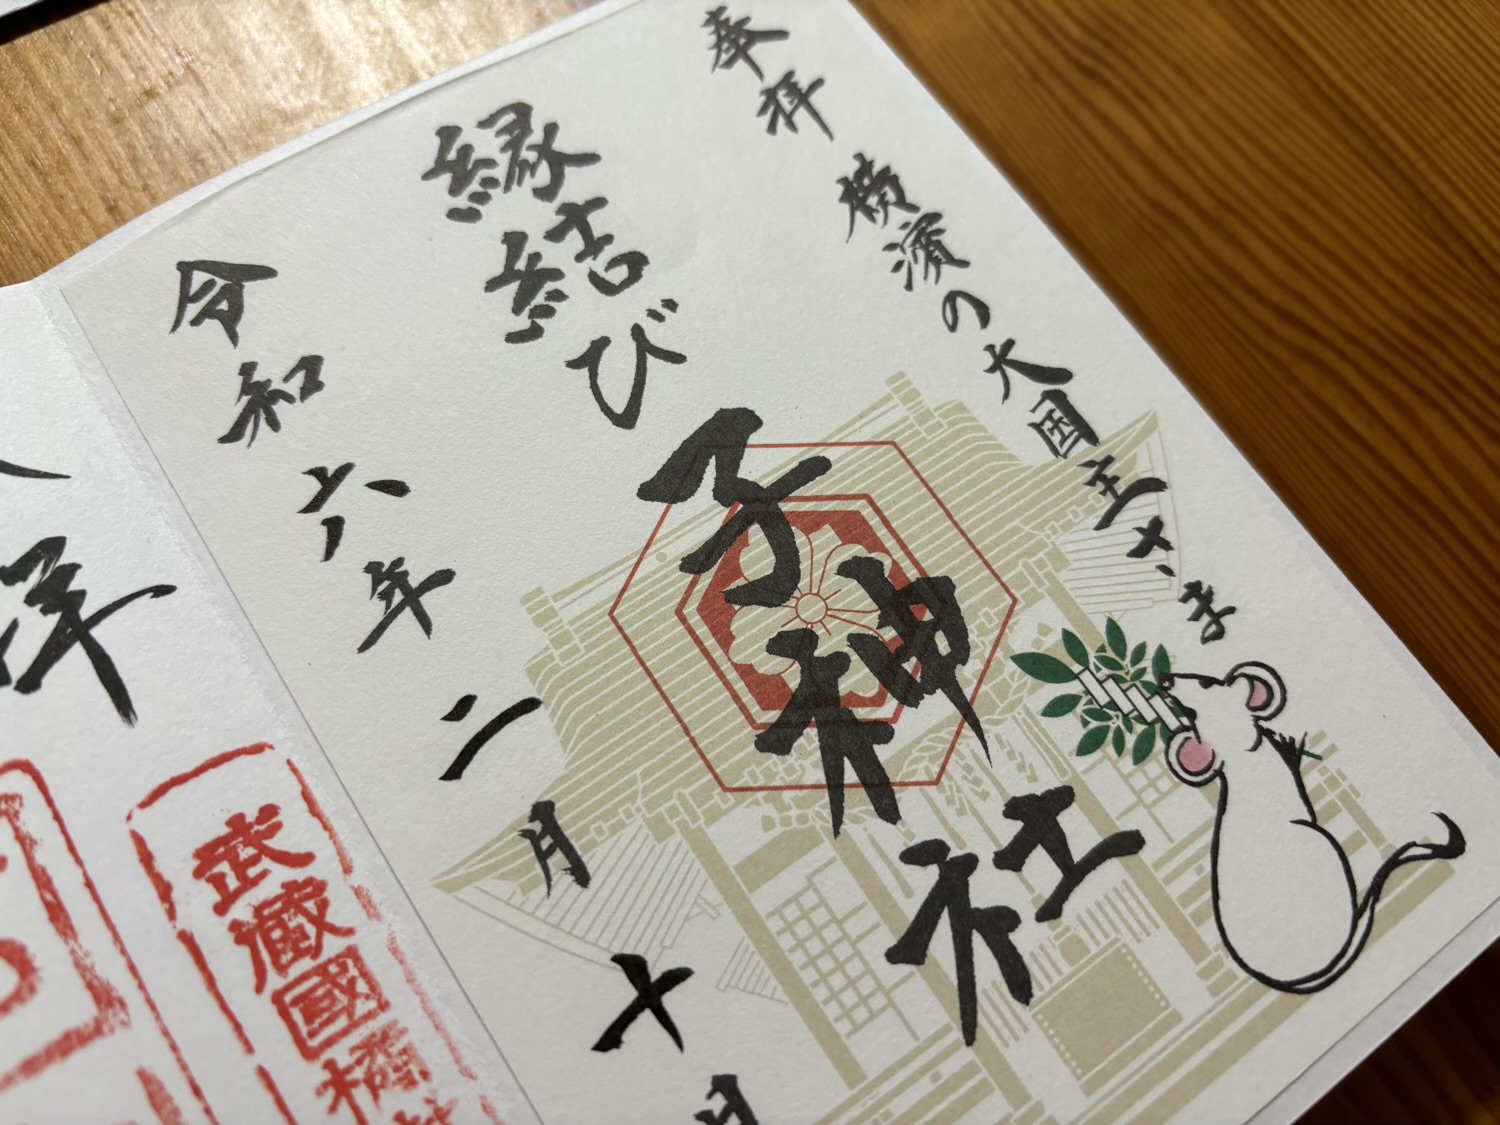 奉拝 横濱の大国主さま
縁結び 子神社
令和六年二月十日
拝
武藏國橘